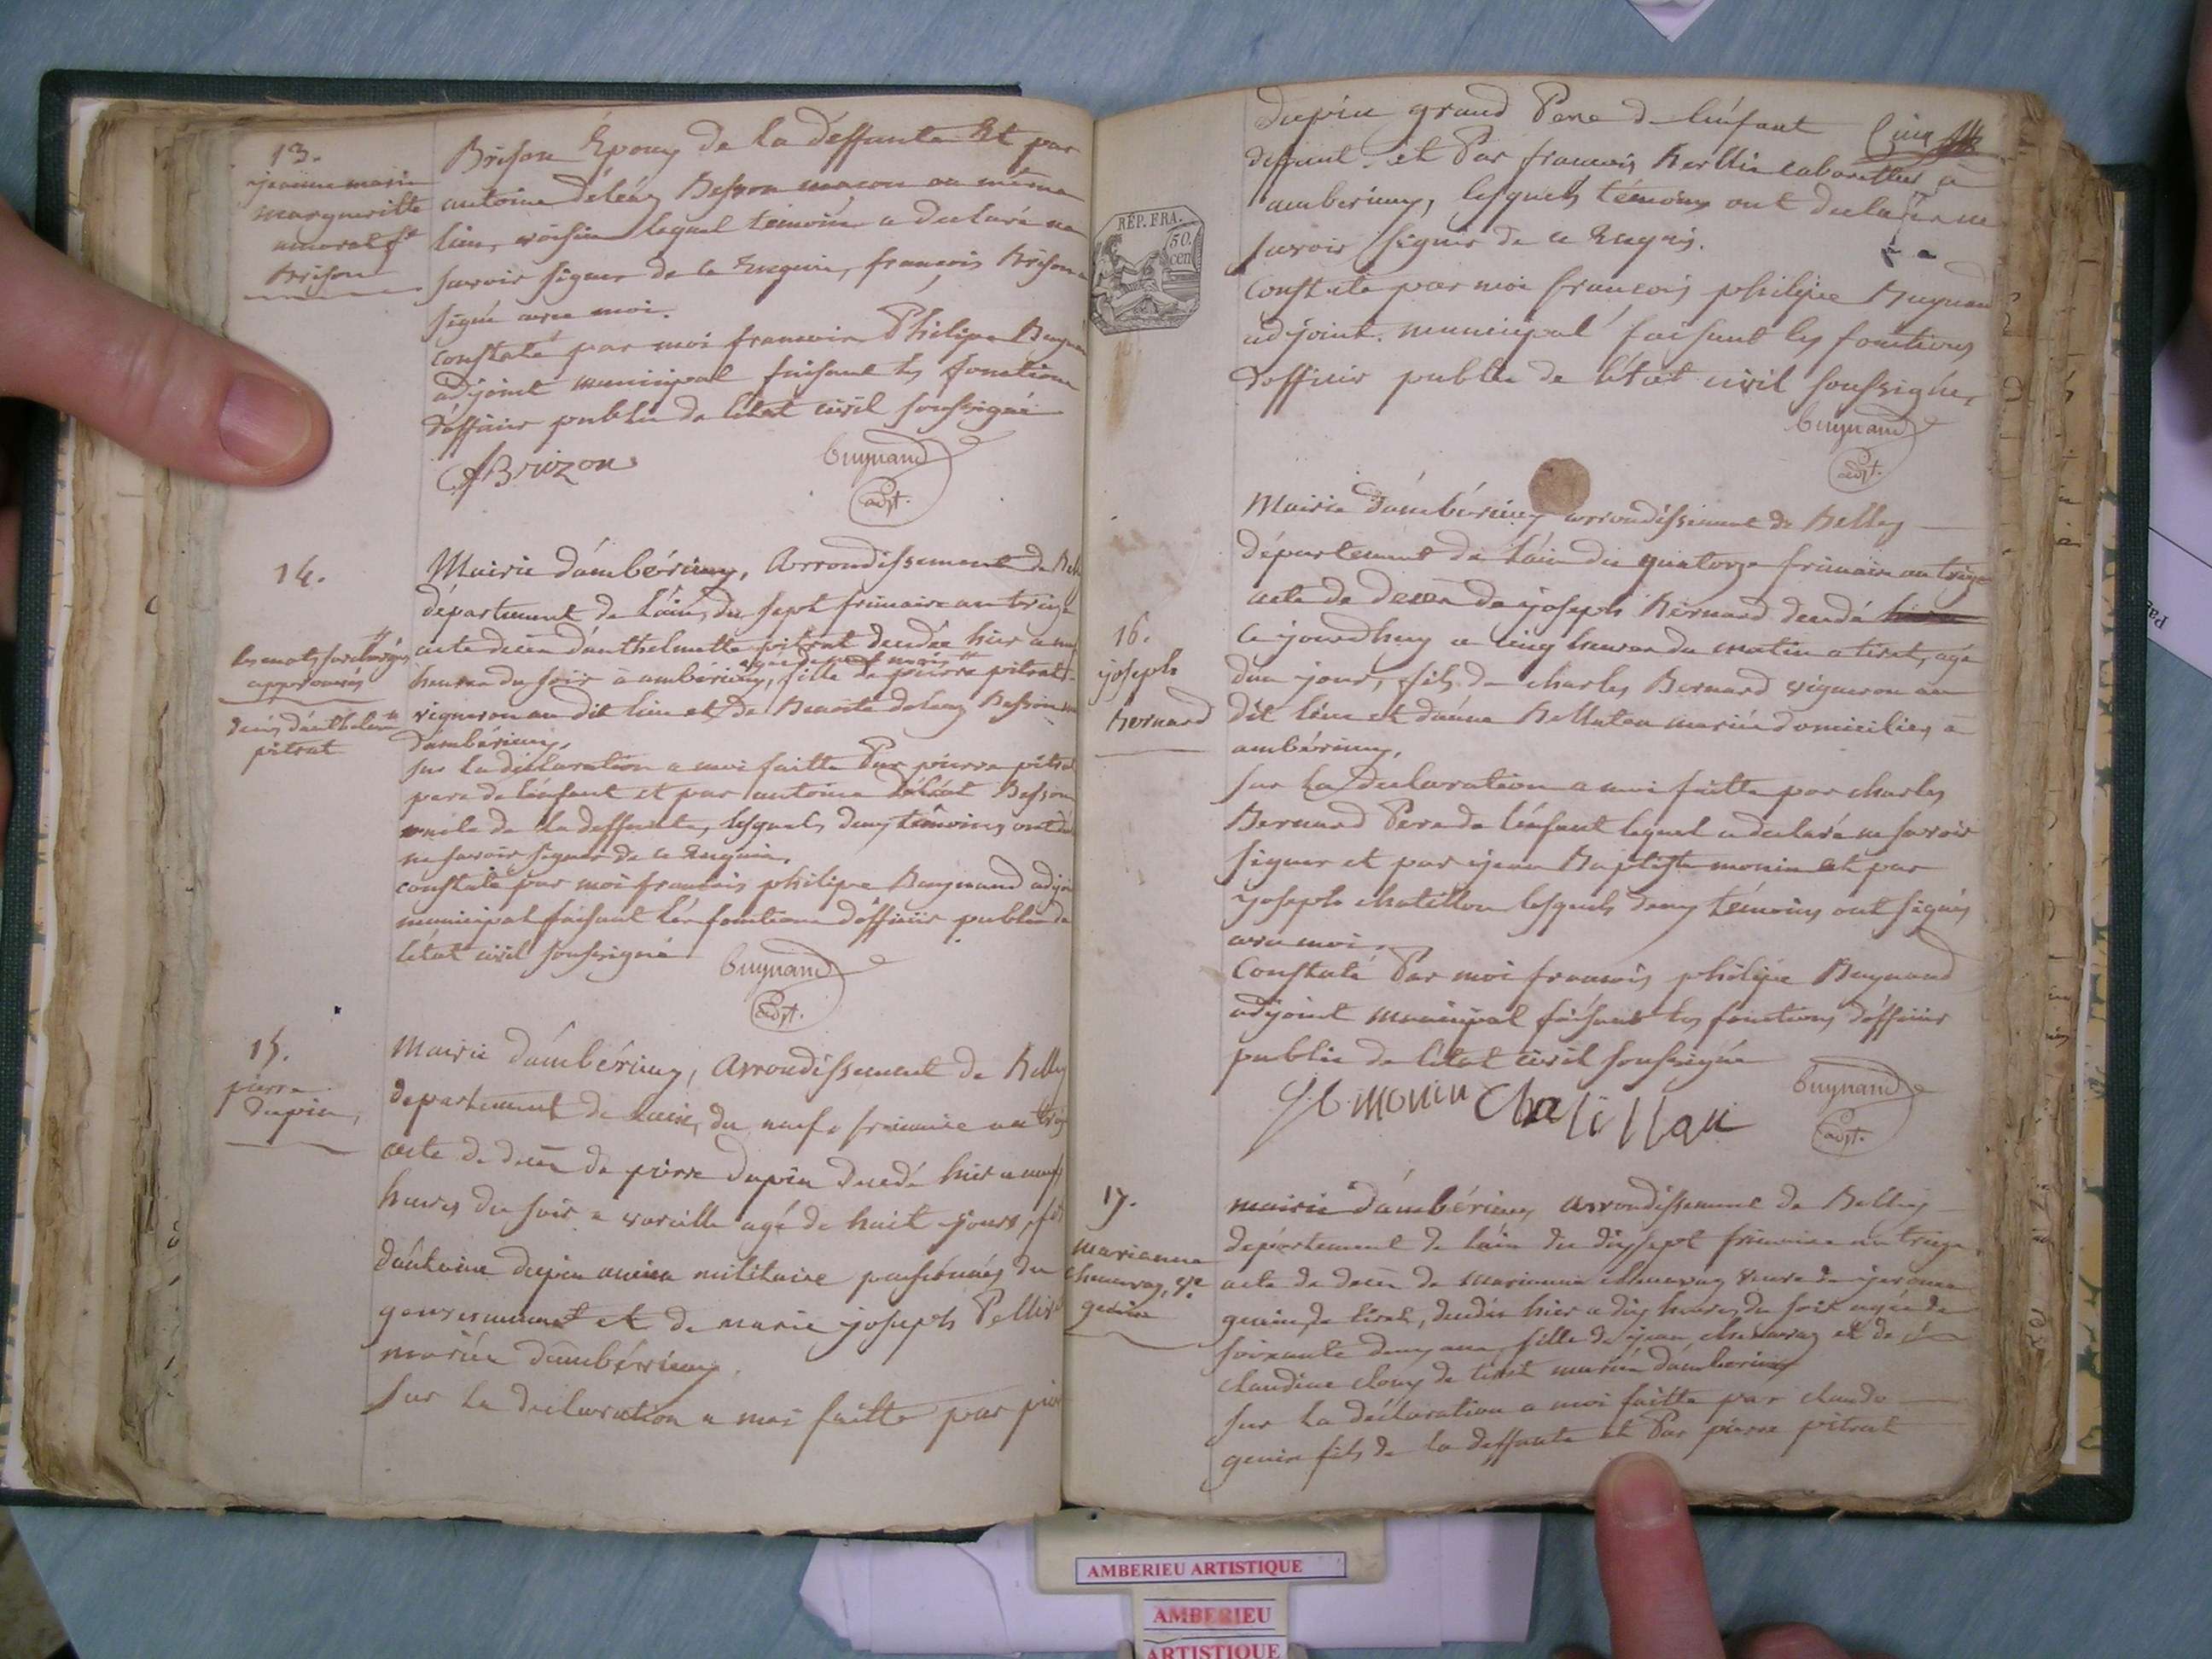 13.
jeanne marie
margueritte
amoral fe
Brison
Brison Epoux de la deffunte Et par
antoine déléaz Besson macon au même
lieu, voisin lequel témoin a declaré ne
savoir signer de ce Enquis, françois Brison a
signé avec moi.
constaté par moi francois Philipe Buynand
adjoint municipal faisant les fonctions
d'officier public de létat civil soussigné
fBrizon
buynand
adjt.
14.
les mots surchargés
approuvés
décès d'anthelmette
pitrat
Mairie d'ambérieux, Arrondissement de Belley
département de l'ain, du sept frimaire an treize
acte de décès d'anthelmette pitrat décédée hier a neuf
heures du soir à ambérieux, fille de pierre pitrat
vigneron au dit lieu et de Benoite déléaz Besson
d'ambérieux.
sur la déclaration a moi faitte Par pierre pitrat
pere de l'enfant et par antoine déléat Besson
oncle de la deffunte, lesquels deux témoins ont
ne savoir signer de ce Enquis.
constaté par moi francois philipe Buynand adjoint
municipal faisant les fonctions d'officier public de
létat civil soussigné
buynand
adjt.
15.
pierre
dupin,
Mairie d'ambérieux, Arrondissement de Belley
département de l'ain, du neuf frimaire an treize
acte de décès de pierre dupin décédé hier a neuf
heures du soir a vareille agé de huit jours, fils
d'antoine dupin ancien militaire pensionnés du
gouvernement et de marie joseph Pellis
mariés d'ambérieux.
sur la déclaration a moi faitte par pierre
RÉP. FRA.
50.
cen
dupin grand Pere de l'enfant
Cinq
deffunt. et Par francois Berthie cabarettier a
amberieux, lesquels témoins ont declarés ne
savoir signer de ce Enquis.
constaté par moi francois philipe Buynand
adjoint municipal faisant les fonctions
d'officier public de l'état civil soussigné,
buynand
adjt.
16.
joseph
Bernard
Mairie d'ambérieux arrondissement de Belley
département de l'ain du quatorze frimaire an treize
acte de décès de joseph Bernard décédé
ce jourdhuy a cinq heures du matin a tiret, agé
dun jour, fils de charles Bernard vigneron au
dit lieu et d'anne Bellaton mariés domiciliés a
ambérieux.
sur la déclaration a moi faitte par charles
Bernard Pere de l'enfant lequel a declaré ne savoir
signer et par jean Baptiste monin et par
joseph chatillon lesquels deux témoins ont signés
avec moi.
Constaté Par moi francois philipe Buynand
adjoint municipal faisant les fonctions d'officier
public de létat civil soussigné
monin Chatillon
buynand
adjt.
17.
marianne
chenavaz, ve
genin
mairie d'ambérieux arrondissement de Belley
département de l'ain du dixsept frimaire an treize.
acte de décès de marianne chenavaz veuve de jerome
genin, de tiret, décédée hier a dix heures du soir agée de
soixante deux ans, fille de jean chenavaz et de
claudine de tiret mariés d'amberieux
sur la déclaration a moi faitte par claude
genin fils de la deffunte et Par pierre pitrat
AMBERIEU ARTISTIQUE
AMBERIEU
ARTISTIQUE